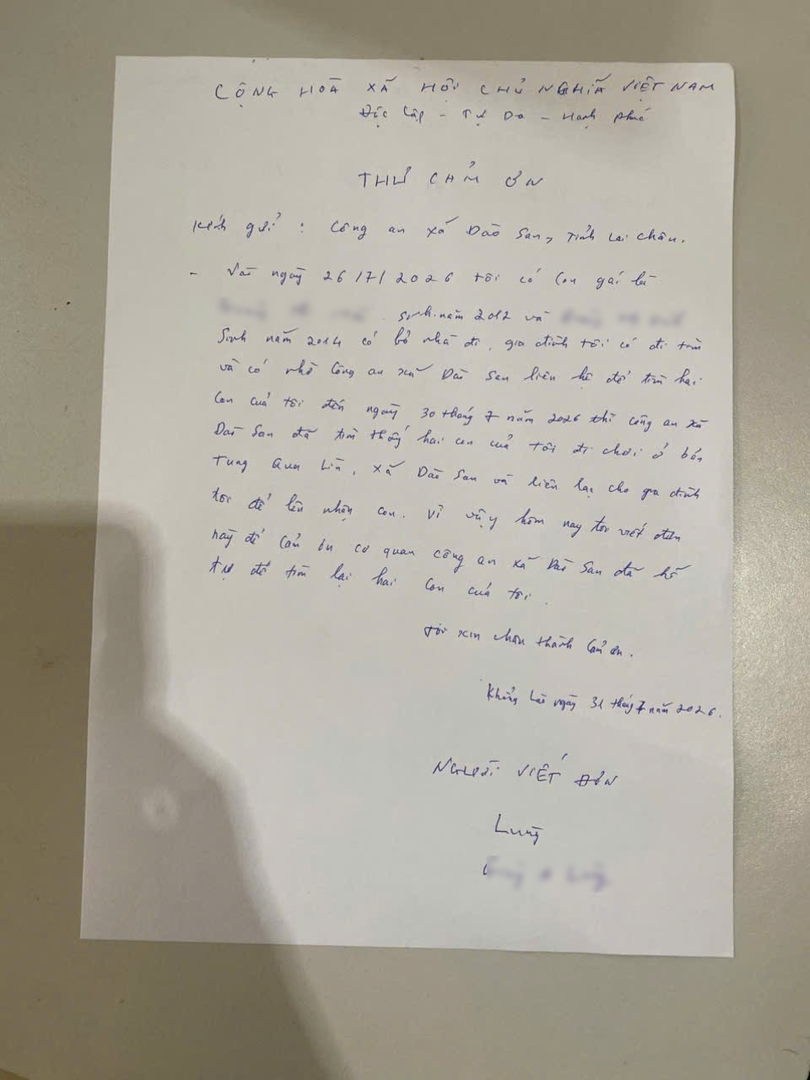 CỘNG HOÀ XÃ HỘI CHỦ NGHĨA VIỆT NAM
Độc lập - Tự Do - Hạnh phúc
THƯ CẢM ƠN
Kính gửi : Công an xã Dào San, Tỉnh Lai Châu.
- Vào ngày 26/7/2026 tôi có con gái là
sinh năm 2012 và
Sinh năm 2014 có bỏ nhà đi, gia đình tôi có đi tìm
và có nhờ Công an xã Dào San liên hệ để tìm hai
con của tôi đến ngày 30 tháng 7 năm 2026 thì công an xã
Dào San đã tìm thấy hai con của tôi đi chơi ở bản
Tung Qua Lìn, xã Dào San và liên lạc cho gia đình
tôi để lên nhận con. Vì vậy hôm nay tôi viết đơn
này để cản ơn cơ quan công an xã Dào San đã hỗ
trợ để tìm lại hai con của tôi.
Tôi xin chân thành cản ơn.
ngày 31 tháng 7 năm 2026.
NGƯỜI VIẾT ĐƠN